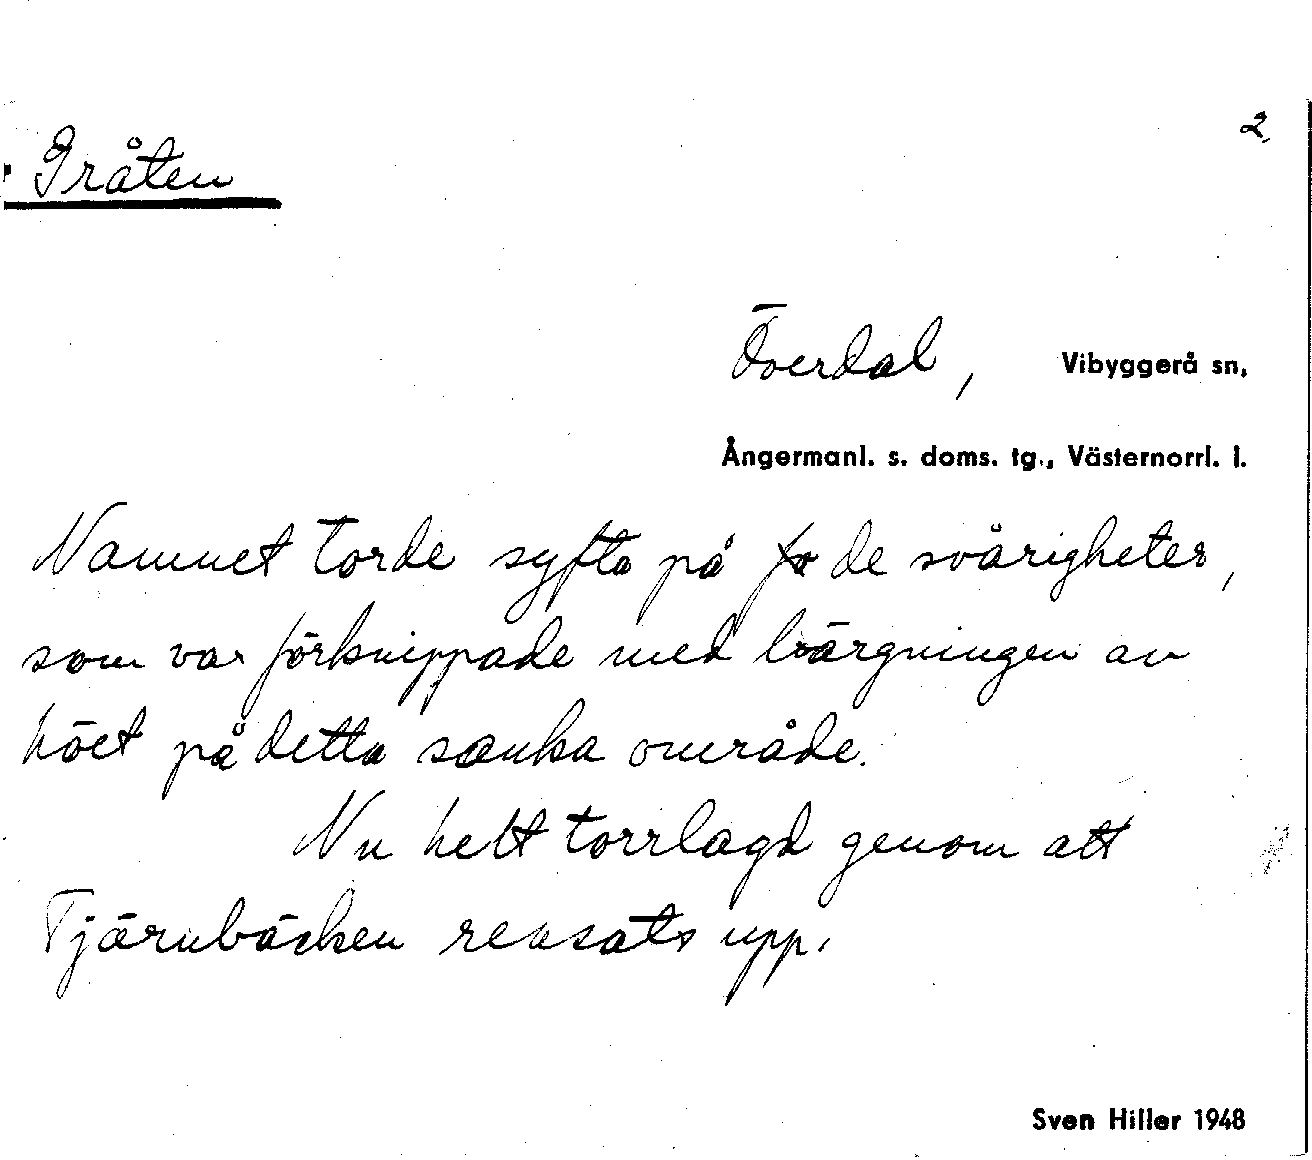 2.
Gråten
Överdal, Vibyggerå sn,
Ångermanl. s. doms. tg., Västernorrl. l.
Namnet torde syfta på de svårigheter,
som var förknippade med bärgningen av
höet på detta sanka område.
Nu helt torrlagd genom att
Tjärnbäcken rensats upp.
Sven Hiller 1948